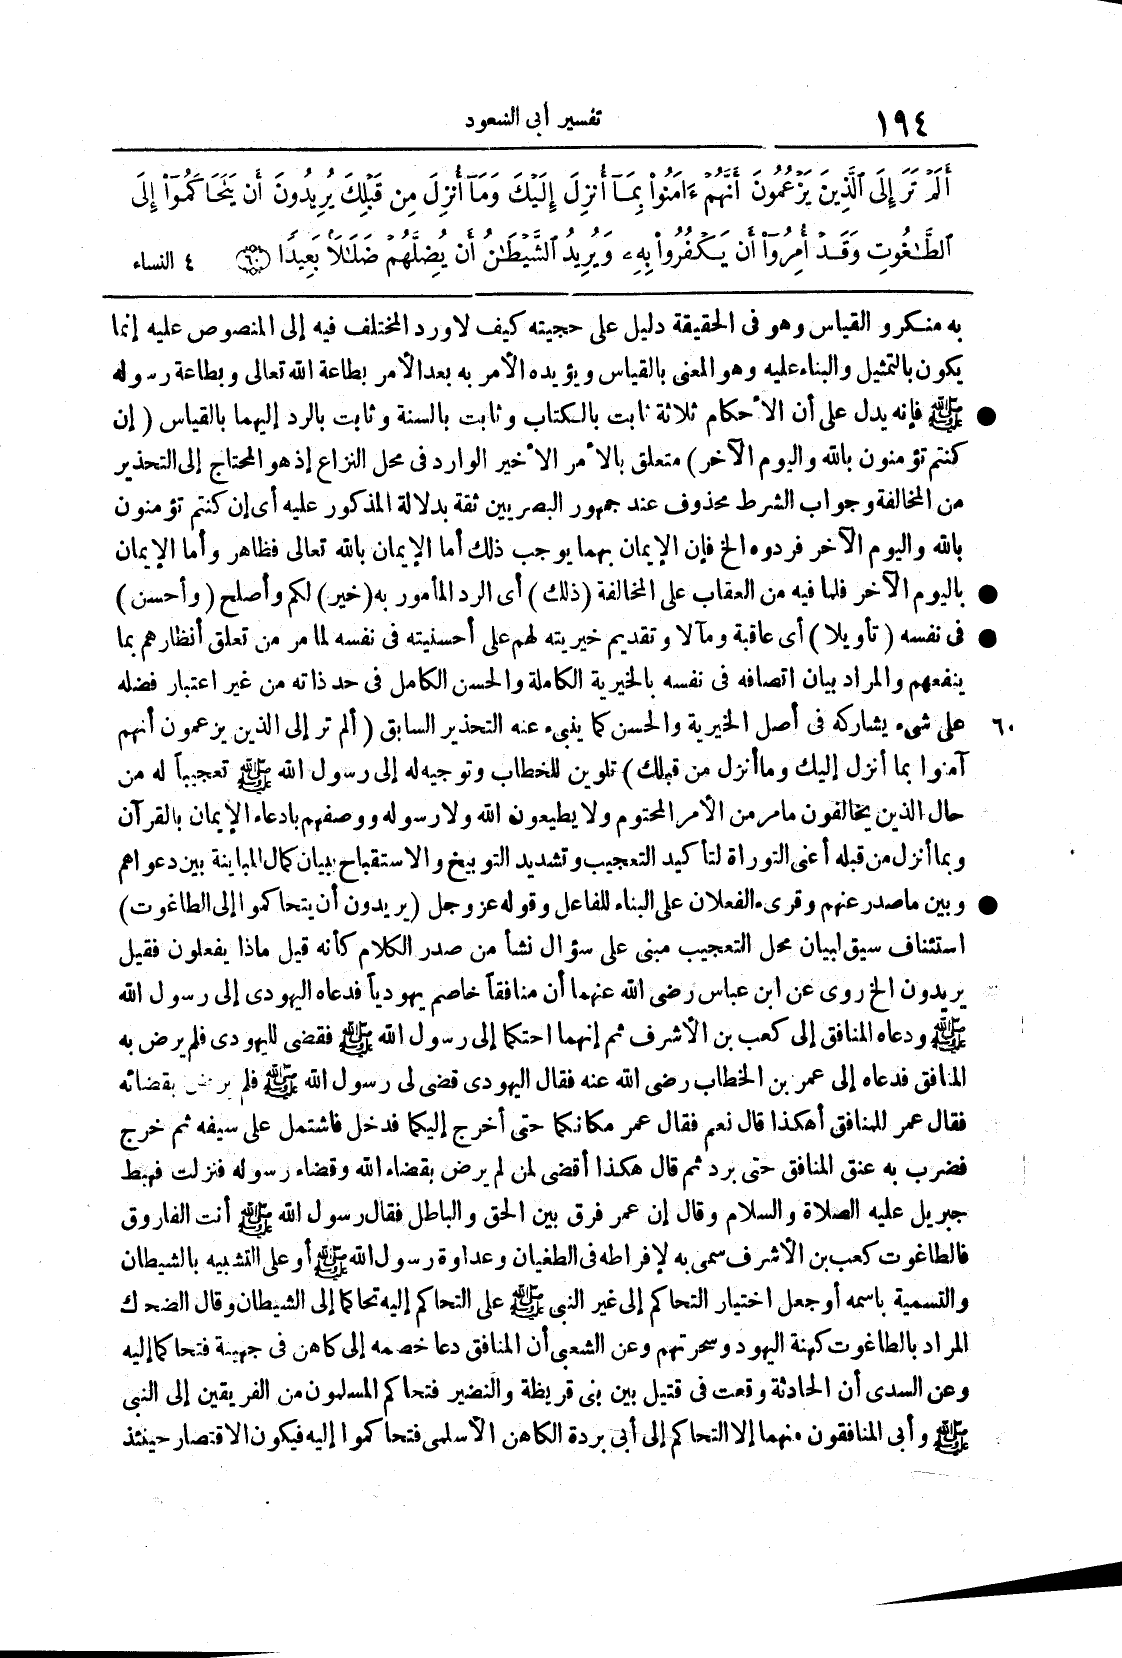 ١٩٤ تفسير أبى السعود
أَلَمْ تَرَ إِلَى ٱلَّذِينَ يَزْعُمُونَ أَنَّهُمْ ءَامَنُوا۟ بِمَآ أُنزِلَ إِلَيْكَ وَمَآ أُنزِلَ مِن قَبْلِكَ يُرِيدُونَ أَن يَتَحَاكَمُوٓا۟ إِلَى
ٱلطَّـٰغُوتِ وَقَدْ أُمِرُوٓا۟ أَن يَكْفُرُوا۟ بِهِۦ وَيُرِيدُ ٱلشَّيْطَـٰنُ أَن يُضِلَّهُمْ ضَلَـٰلًۢا بَعِيدًا ٦٠ ٤ النساء
به منكرو القياس وهو فى الحقيقة دليل على حجيته كيف لا ورد المختلف فيه إلى المنصوص عليه إنما
يكون بالتمثيل والبناء عليه وهو المعنى بالقياس ويؤيده الأمر به بعد الأمر بطاعة الله تعالى وبطاعة رسوله
● ﷺ فإنه يدل على أن الأحكام ثلاثة ثابت بالكتاب وثابت بالسنة وثابت بالرد إليهما بالقياس ( إن
كنتم تؤمنون بالله واليوم الآخر ) متعلق بالأمر الأخير الوارد فى محل النزاع إذ هو المحتاج إلى التحذير
من المخالفة وجواب الشرط محذوف عند جمهور البصريين ثقة بدلالة المذكور عليه أى إن كنتم تؤمنون
بالله واليوم الآخر فردوه الخ فإن الإيمان بهما يوجب ذلك أما الإيمان بالله تعالى فظاهر وأما الإيمان
● باليوم الآخر فلما فيه من العقاب على المخالفة (ذلك) أى الرد المأمور به (خير) لكم وأصلح (وأحسن)
● فى نفسه ( تأويلا ) أى عاقبة ومآلا وتقديم خيريته لهم على أحسنيته فى نفسه لما مر من تعلق أنظارهم بما
ينفعهم والمراد بيان اتصافه فى نفسه بالخيرية الكاملة والحسن الكامل فى حد ذاته من غير اعتبار فضله
٦٠ على شىء يشاركه فى أصل الخيرية والحسن كما ينبىء عنه التحذير السابق ( ألم تر إلى الذين يزعمون أنهم
آمنوا بما أنزل إليك وما أنزل من قبلك ) تلوين للخطاب وتوجيه له إلى رسول الله ﷺ تعجيباً له من
حال الذين يخالفون ما مر من الأمر المحتوم ولا يطيعون الله ولا رسوله ووصفهم بادعاء الإيمان بالقرآن
وبما أنزل من قبله أعنى التوراة لتأكيد التعجيب وتشديد التوبيخ والاستقباح ببيان كمال المباينة بين دعواهم
● وبين ما صدر عنهم وقرىء الفعلان على البناء للفاعل وقوله عز وجل (يريدون أن يتحاكموا إلى الطاغوت)
استئناف سيق لبيان محل التعجيب مبنى على سؤال نشأ من صدر الكلام كأنه قيل ماذا يفعلون فقيل
يريدون الخ روى عن ابن عباس رضى الله عنهما أن منافقاً خاصم يهودياً فدعاه اليهودى إلى رسول الله
ﷺ ودعاه المنافق إلى كعب بن الأشرف ثم إنهما احتكما إلى رسول الله ﷺ فقضى لليهودى فلم يرض به
المنافق فدعاه إلى عمر بن الخطاب رضى الله عنه فقال اليهودى قضى لى رسول الله ﷺ فلم يرض بقضائه
فقال عمر للمنافق أهكذا قال نعم فقال عمر مكانكما حتى أخرج إليكما فدخل فاشتمل على سيفه ثم خرج
فضرب به عنق المنافق حتى برد ثم قال هكذا أقضى لمن لم يرض بقضاء الله وقضاء رسوله فنزلت فهبط
جبريل عليه الصلاة والسلام وقال إن عمر فرق بين الحق والباطل فقال رسول الله ﷺ أنت الفاروق
فالطاغوت كعب بن الأشرف سمى به لإفراطه فى الطغيان وعداوة رسول الله ﷺ أو على التشبيه بالشيطان
والتسمية باسمه أو جعل اختيار التحاكم إلى غير النبى ﷺ على التحاكم إليه تحاكما إلى الشيطان وقال الضحاك
المراد بالطاغوت كهنة اليهود وسحرتهم وعن الشعبى أن المنافق دعا خصمه إلى كاهن فى جهينة فتحاكما إليه
وعن السدى أن الحادثة وقعت فى قتيل بين بنى قريظة والنضير فتحاكم المسلمون من الفريقين إلى النبى
ﷺ وأبى المنافقون منهما إلا التحاكم إلى أبى بردة الكاهن الأسلمى فتحاكموا إليه فيكون الاقتصار حينئذ